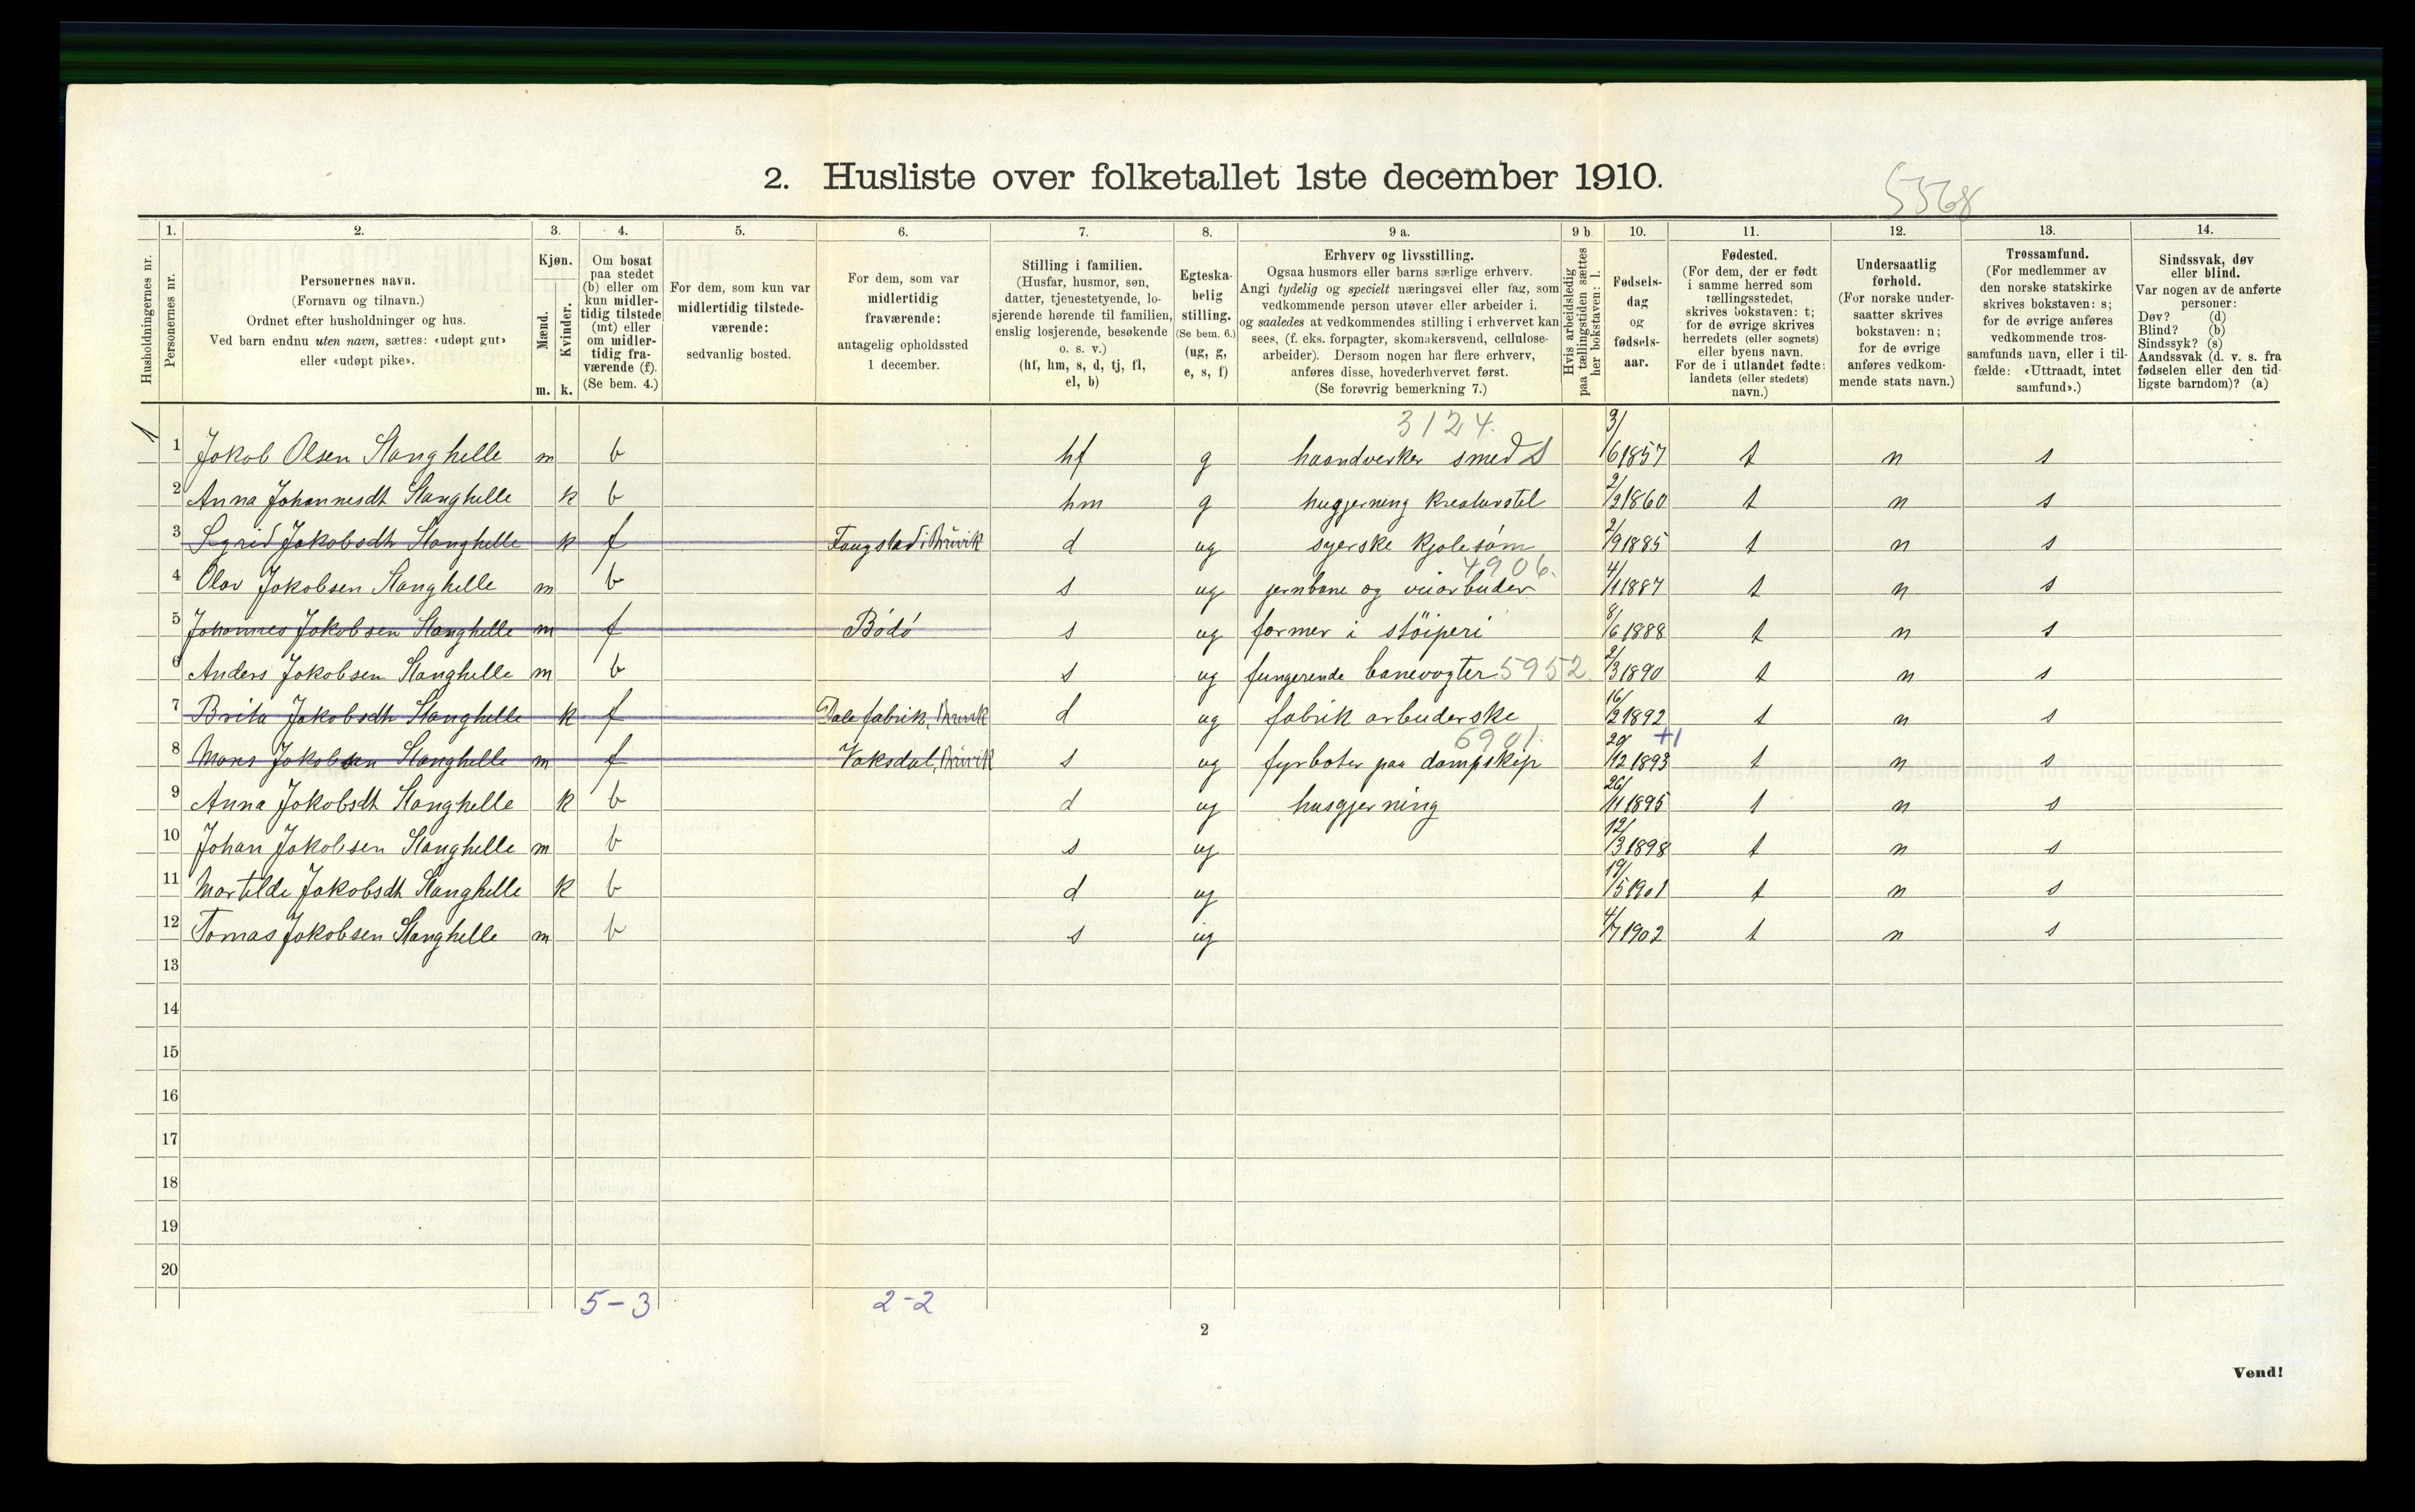 2. Husliste over folketallet 1ste december 1910.
5568
Husholdningernes nr.
1.
Personernes nr.
2.
Personernes navn.
(Fornavn og tilnavn.)
Ordnet efter husholdninger og hus.
Ved barn endnu uten navn, sættes: «udøpt gut»
eller «udøpt pike».
3.
Kjøn.
Mænd.
m.
Kvinder.
k.
4.
Om bosat
paa stedet
(b) eller om
kun midler-
tidig tilstede
(mt) eller
om midler-
tidig fra-
værende (f).
(Se bem. 4.)
5.
For dem, som kun var
midlertidig tilstede-
værende:
sedvanlig bosted.
6.
For dem, som var
midlertidig
fraværende:
antagelig opholdssted
1 december.
7.
Stilling i familien.
(Husfar, husmor, søn,
datter, tjenestetyende, lo-
sjerende hørende til familien,
enslig losjerende, besøkende
o. s. v.)
(hf, hm, s, d, tj, fl,
el, b)
8.
Egteska-
belig
stilling.
(Se bem. 6.)
(ug, g,
e, s, f)
9 a.
Erhverv og livsstilling.
Ogsaa husmors eller barns særlige erhverv.
Angi tydelig og specielt næringsvei eller fag, som
vedkommende person utøver eller arbeider i,
og saaledes at vedkommendes stilling i erhvervet kan
sees, (f. eks. forpagter, skomakersvend, cellulose-
arbeider). Dersom nogen har flere erhverv,
anføres disse, hovederhvervet først.
(Se forøvrig bemerkning 7.)
9 b.
Hvis arbeidsledig
paa tællingstiden sættes
her bokstaven: l.
10.
Fødsels-
dag
og
fødsels-
aar.
11.
Fødested.
(For dem, der er født
i samme herred som
tællingsstedet,
skrives bokstaven: t;
for de øvrige skrives
herredets (eller sognets)
eller byens navn.
For de i utlandet fødte:
landets (eller stedets)
navn.)
12.
Undersaatlig
forhold.
(For norske under-
saatter skrives
bokstaven: n;
for de øvrige
anføres vedkom-
mende stats navn.)
13.
Trossamfund.
(For medlemmer av
den norske statskirke
skrives bokstaven: s;
for de øvrige anføres
vedkommende tros-
samfunds navn, eller i til-
fælde: «Uttraadt, intet
samfund».)
14.
Sindssvak, døv
eller blind.
Var nogen av de anførte
personer:
Døv? (d)
Blind? (b)
Sindssyk? (s)
Aandssvak (d. v. s. fra
fødselen eller den tid-
ligste barndom)? (a)
3124.
1 1 Jakob Olsen Stanghelle m b hf g haandverker smed S 3/6 1857 t n s
2 Anna Johannesdt Stanghelle k b hm g husgjerning kreaturstel 2/2 1860 t n s
3 Sigrid Jakobsdtr Stanghelle k f d ug syerske kjolesøm 2/9 1885 t n s
4906.
4 Olav Jakobsen Stanghelle m b s ug jernbane og veiarbuder 4/1 1887 t n s
5 Johannes Jakobsen Stanghelle m f Bodö s ug former i stöiperi 8/6 1888 t n s
6 Anders Jakobsen Stanghelle m b s ug fungerende banevogter 5952 2/3 1890 t n s
7 Brita Jakobsdtr Stanghelle k f Dale fabrik, Bruvik d ug fabrik arbuderske 16/2 1892 t n s
6901. +1
8 Mons Jakobsen Stanghelle m f Vaksdal, Bruvik s ug fyrboter paa dampskip 20/12 1893 t n s
9 Anna Jakobsdt Stanghelle k b d ug husgjerning 26/11 1895 t n s
10 Johan Jakobsen Stanghelle m b s ug 12/3 1898 t n s
11 Martilde Jakobsdt Stanghelle k b d ug 19/5 1901 t n s
12 Tomas Jakobsen Stanghelle m b s ug 4/7 1902 t n s
13
14
15
16
17
18
19
20
5-3 2-2
2
Vend!